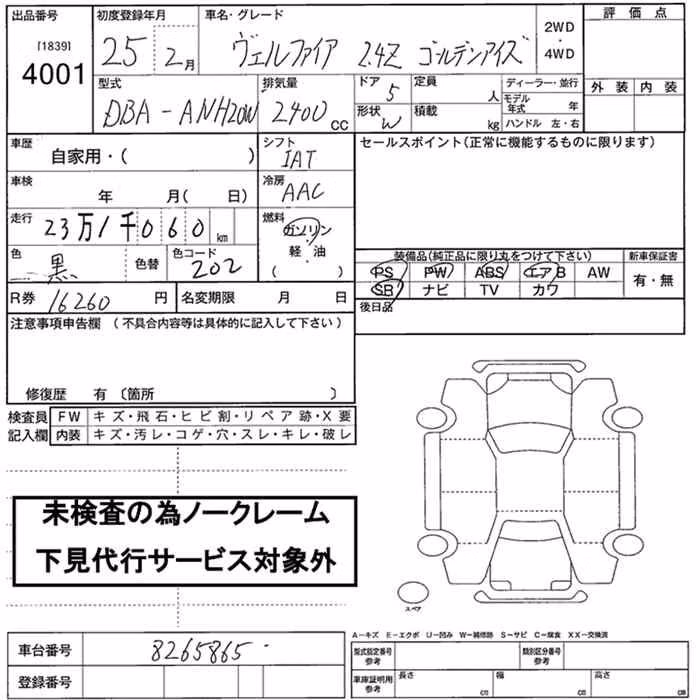 出品番号 初度登録年月 車名・グレード 2WD 評価点
[1839] 4001 25 2月 ヴェルファイア 2.4Z ゴールデンアイズ ・ 4WD
型式 排気量 ドア 定員 ディーラー・並行 外装 内装
DBA-ANH20W 2400cc 5 人 モデル年式 年
形状 積載 ハンドル 左・右
W kg
車歴 自家用・( ) シフト セールスポイント(正常に機能するものに限ります)
IAT
車検 年 月( 日) 冷房
AAC
走行 23万1千060km 燃料
ガソリン
軽・油
( )
色 黒 色替 色コード 202 装備品(純正品に限り丸をつけて下さい) 新車保証書
PS PW ABS エアB AW 有・無
SR ナビ TV カワ
R券 16260円 名変期限 月 日 後日品
注意事項申告欄(不具合内容等は具体的に記入して下さい)
修復歴 有〔箇所 〕
検査員 FW キズ・飛石・ヒビ割・リペア跡・X要
記入欄 内装 キズ・汚レ・コゲ・穴・スレ・キレ・破レ
未検査の為ノークレーム
下見代行サービス対象外
スペア
A−キズ E−エクボ U−凹み W−補修跡 S−サビ C−腐食 XX−交換済
車台番号 8265865 型式指定番号 参考 類別区分番号 参考
登録番号 車庫証明用 参考 長さ cm 幅 cm 高さ cm